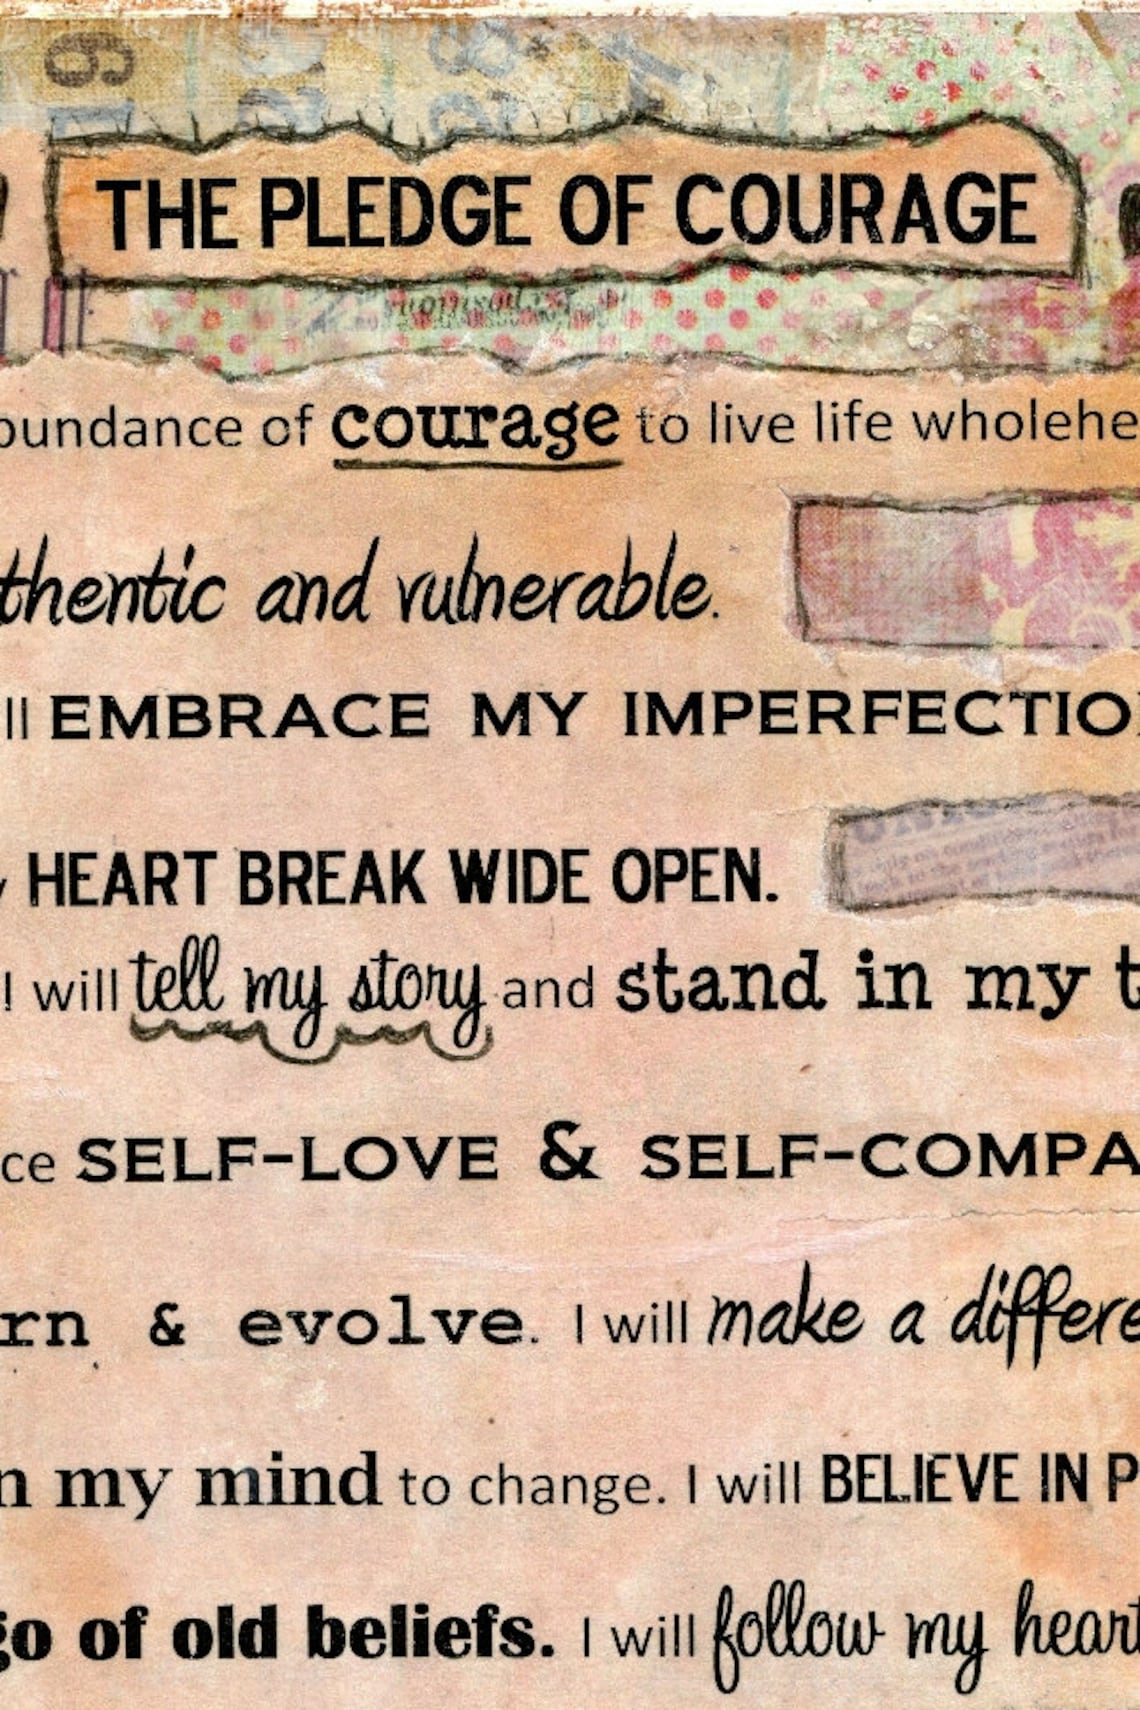 THE PLEDGE OF COURAGE
oundance of courage to live life wholehe
thentic and vulnerable.
ll EMBRACE MY IMPERFECTIO
HEART BREAK WIDE OPEN.
! I will tell my story and stand in my t
ce SELF-LOVE & SELF-COMPA
rn & evolve. I will make a differe
n my mind to change. I will BELIEVE IN P
go of old beliefs. I will follow my heart